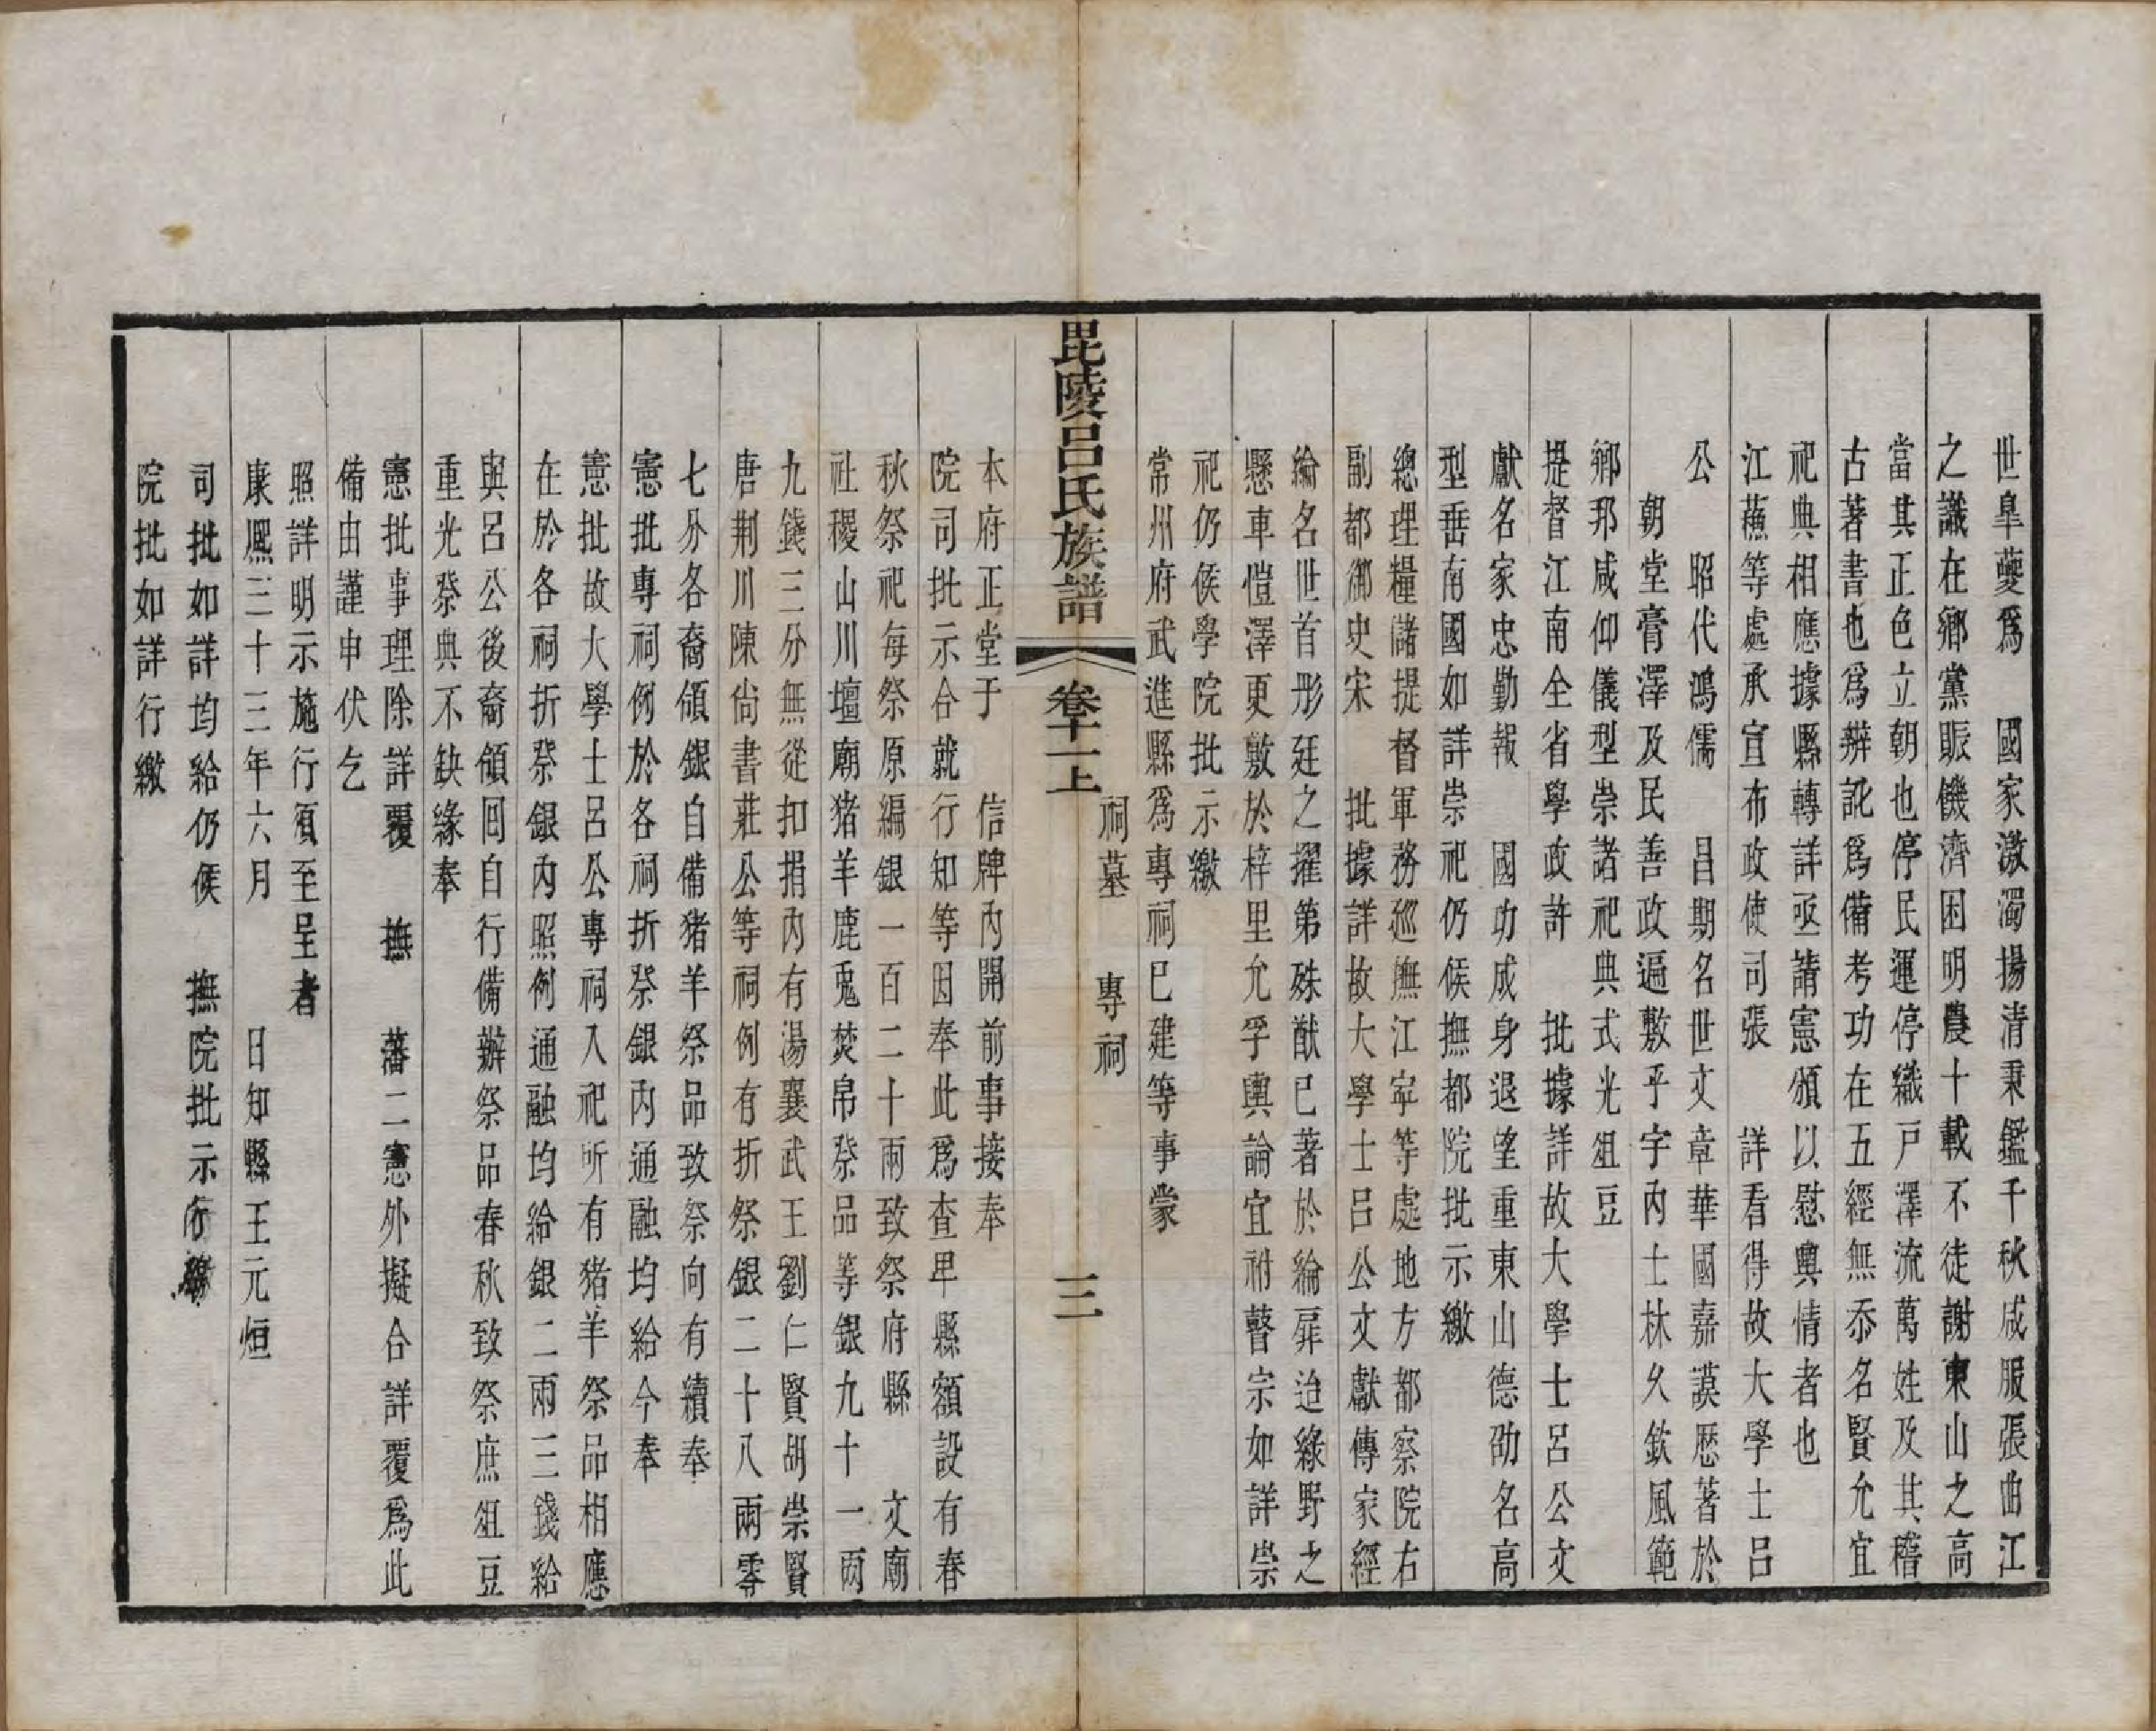 世皐夔爲　國家激濁揚清秉鑑千秋咸服張曲江
之識在鄉黨賑饑濟困明農十載不徒謝東山之高
當其正色立朝也停民運停織戸澤流萬姓及其稽
古著書也爲辨訛爲備考功在五經無忝名賢允宜
祀典相應據縣轉詳亟請憲頒以慰輿情者也
江蘓等處承宣布政使司張　詳看得故大學士呂
公　昭代鴻儒　昌期名世文章華國嘉謨歷著於
朝堂膏澤及民善政遍敷乎宇內士林久欽風範
鄉邦咸仰儀型崇諸祀典式光俎豆
提督江南全省學政許　批據詳故大學士呂公文
獻名家忠勤報　國功成身退望重東山德劭名高
型垂南國如詳崇祀仍候撫都院批示繳
總理糧儲提督軍務巡撫江寧等處地方都察院右
副都御史宋　批據詳故大學士呂公文獻傳家經
綸名世首彤廷之擢第殊猷已著於綸扉迨綠野之
懸車愷澤更敷於梓里允孚輿論宜祔瞽宗如詳崇
祀仍候學院批示繳
常州府武進縣爲專祠已建等事蒙
毘陵呂氏族譜　卷十一上　祠墓　專祠　三
本府正堂于　信牌內開前事接奉
院司批示合就行知等因奉此爲查卑縣額設有春
秋祭祀每祭原編銀一百二十兩致祭府縣　文廟
社稷山川壇廟猪羊鹿兎焚帛祭品等銀九十一兩
九錢三分無從扣捐內有湯襄武王劉仁賢胡崇賢
唐荆川陳尙書莊公等祠例有折祭銀二十八兩零
七分各裔領銀自備猪羊祭品致祭向有續奉
憲批專祠例於各祠折祭銀內通融均給今奉
憲批故大學士呂公專祠入祀所有猪羊祭品相應
在於各祠折祭銀內照例通融均給銀二兩三錢給
與呂公後裔領回自行備辦祭品春秋致祭庶俎豆
重光祭典不缺緣奉
憲批事理除詳覆　撫　藩二憲外擬合詳覆爲此
備由謹申伏乞
照詳明示施行須至呈者
康熈三十三年六月　　日知縣王元烜
司批如詳均給仍候　撫院批示
院批如詳行繳